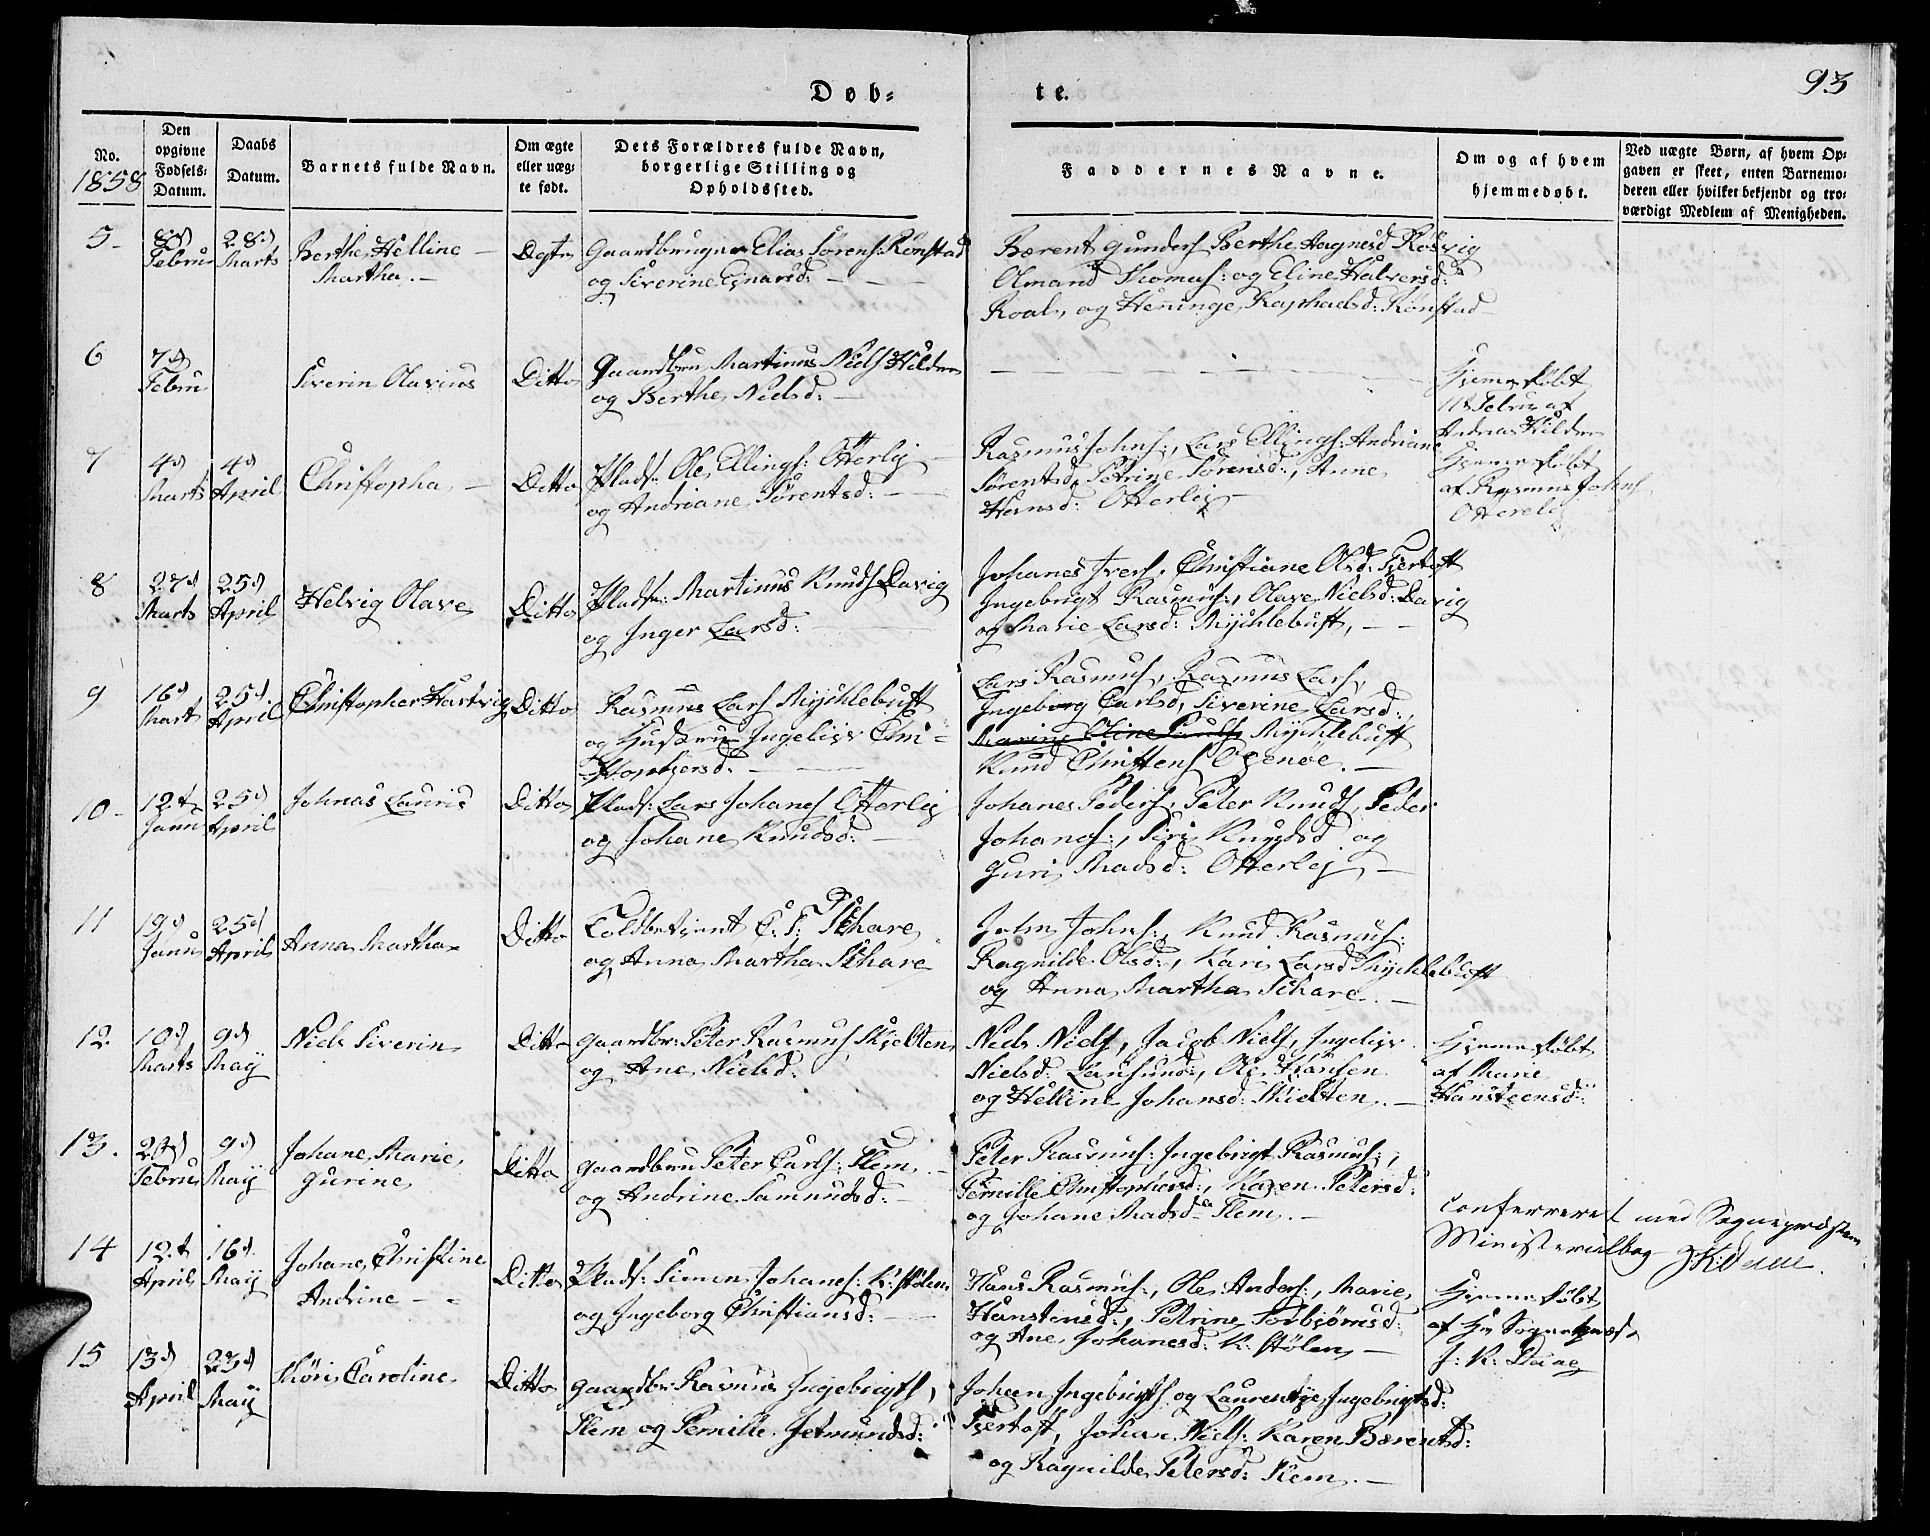 93
Døb-
te.
No.
1858
Den
opgivne
Fødsels-
Datum.
Daabs
Datum.
Barnets fulde Navn.
Om ægte
eller uæg-
te født.
Dets Forældres fulde Navn,
borgerlige Stilling og
Opholdssted.
Faddernes Navne.
Om og af hvem
hjemmedøbt.
Ved uægte Børn, af hvem Op-
gaven er skeet, enten Barnemo-
deren eller hvilket bekjendt og tro-
værdigt Medlem af Menigheden.
5-
8d
Febru
28d
Marts
Berthe Helline
Martha.
Ægte
Gaardbruger Elias Sørens: Rønstad
og Siverine Einarsd:
Bærent Gunders Berthe Aagnesd Røsvig
Olmand Thomas: og Eline Halversd:
Roald, og Heninge Raphaelsd: Rønstad
6
7d
Febru
Siverin Olavius
Ditto
Gaardbru Martinus Niels Hildre
og Berthe Nielsd:
Hjemedøbt
11t Febru af
Andreas Hildre
7
4d
Marts
4d
April
Christopha
Ditto
Plads: Ole Ellings: Otterlej
og Andriane Sørentsd:
Rasmus Johns:, Lars Ellings: Andriane
Sørentsd, Petrine Sørensd:, Anne
Hansd: Otterlej
Hjemedøbt
af Rasmus Johns
Otterlej
8
27d
Marts
25d
April
Helvig Olave
Ditto
Pladsm: Martinus Knuds Davig
og Inger Larsd:
Johanes Ivers, Christiane Olsd: Fjertoft
Ingebrigt Rasmus:, Olave Nielsd: Davig
og Marie Larsd: Mychlebust,
9
16d
Mart
25d
April
Christopher Hartvig
Ditto
Rasmus Lars Mychlebust
og Hustru Ingeliv Chri-
stophersd.
Lars Rasmus, Rasmus Lars,
Ingeborg Carlsd, Siverine Larsd:
Mychlebust
Knud Christens
10-
12t
Janu
25d
April
Johnas Lauris
Ditto
Plads: Lars Johanes Otterlej
og Johane Knudsd:
Johanes Peders, Peter Knuds, Peder
Johanes:, Siri Knudsd og
Guri Madsd: Otterlej
11
19d
Janu
25d
April
Anna Martha
Ditto
Toldbetjent C. P. Schare
og Anna Martha Schare
John Johns:, Knud Rasmus:
Ragnilde Olsd:, Kari Larsd Mychlebust
og Anna Martha Schare.
12.
10d
Marts
9d
May
Niels Siverin
Ditto
Gaardbr: Peter Rasmus Skjelten
og Ane Nielsd:
Niels Niels, Jacob Niels, Ingeliv
Nielsd: Ole Hansen
og Helline Johansd: Skjelten.
Hjemedøbt
af Marie
Hansteensd:
13.
23d
Febru
9d
May
Johane Marie
Gurine
Ditto
Gaardbru Peter Carls: Flem
og Andrine Samundsd:
Peter Rasmus: Ingebrigt Rasmus:,
Pernille Christophersd:, Karen Petersd:
og Johane Madsd: Flem.
Confereret med Sognepræstens
Ministerialbog
14
12t
April
16d
May
Johane Christine
Andrine
Ditto
Plads: Simen Johanes: K: stølen
og Ingeborg Christiansd:
Hans Rasmus:, Ole Anders:, Marie
Hanstensd:, Petrine Torbjørnsd:
og Ane Johanesd: K: stølen
Hjemedøbt
af Hr Sognepræst
J: K: Daae
15
13d
April
23d
May
Caroline
Ditto
Gaardbr Rasmus Ingebrigts,
Flem og Pernille Jetmundsd:
Johan Ingebrigts og Laurentze Ingebrigtsd:
Fjertoft, Johan Niels: Karen Bærentsd:
og Ragnilde Petersd: Flem.